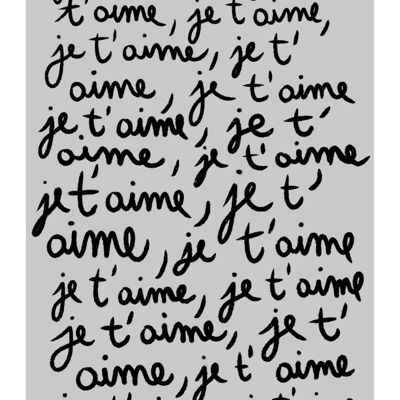 t'aime, je t'aime,
je t'aime, je t'
aime, je t'aime
je t'aime, je t'
aime, je t'aime
je t'aime, je t'
aime, je t'aime
je t'aime, je t'aime
je t'aime, je t'
aime, je t' aime
je t'aime, je t'aime